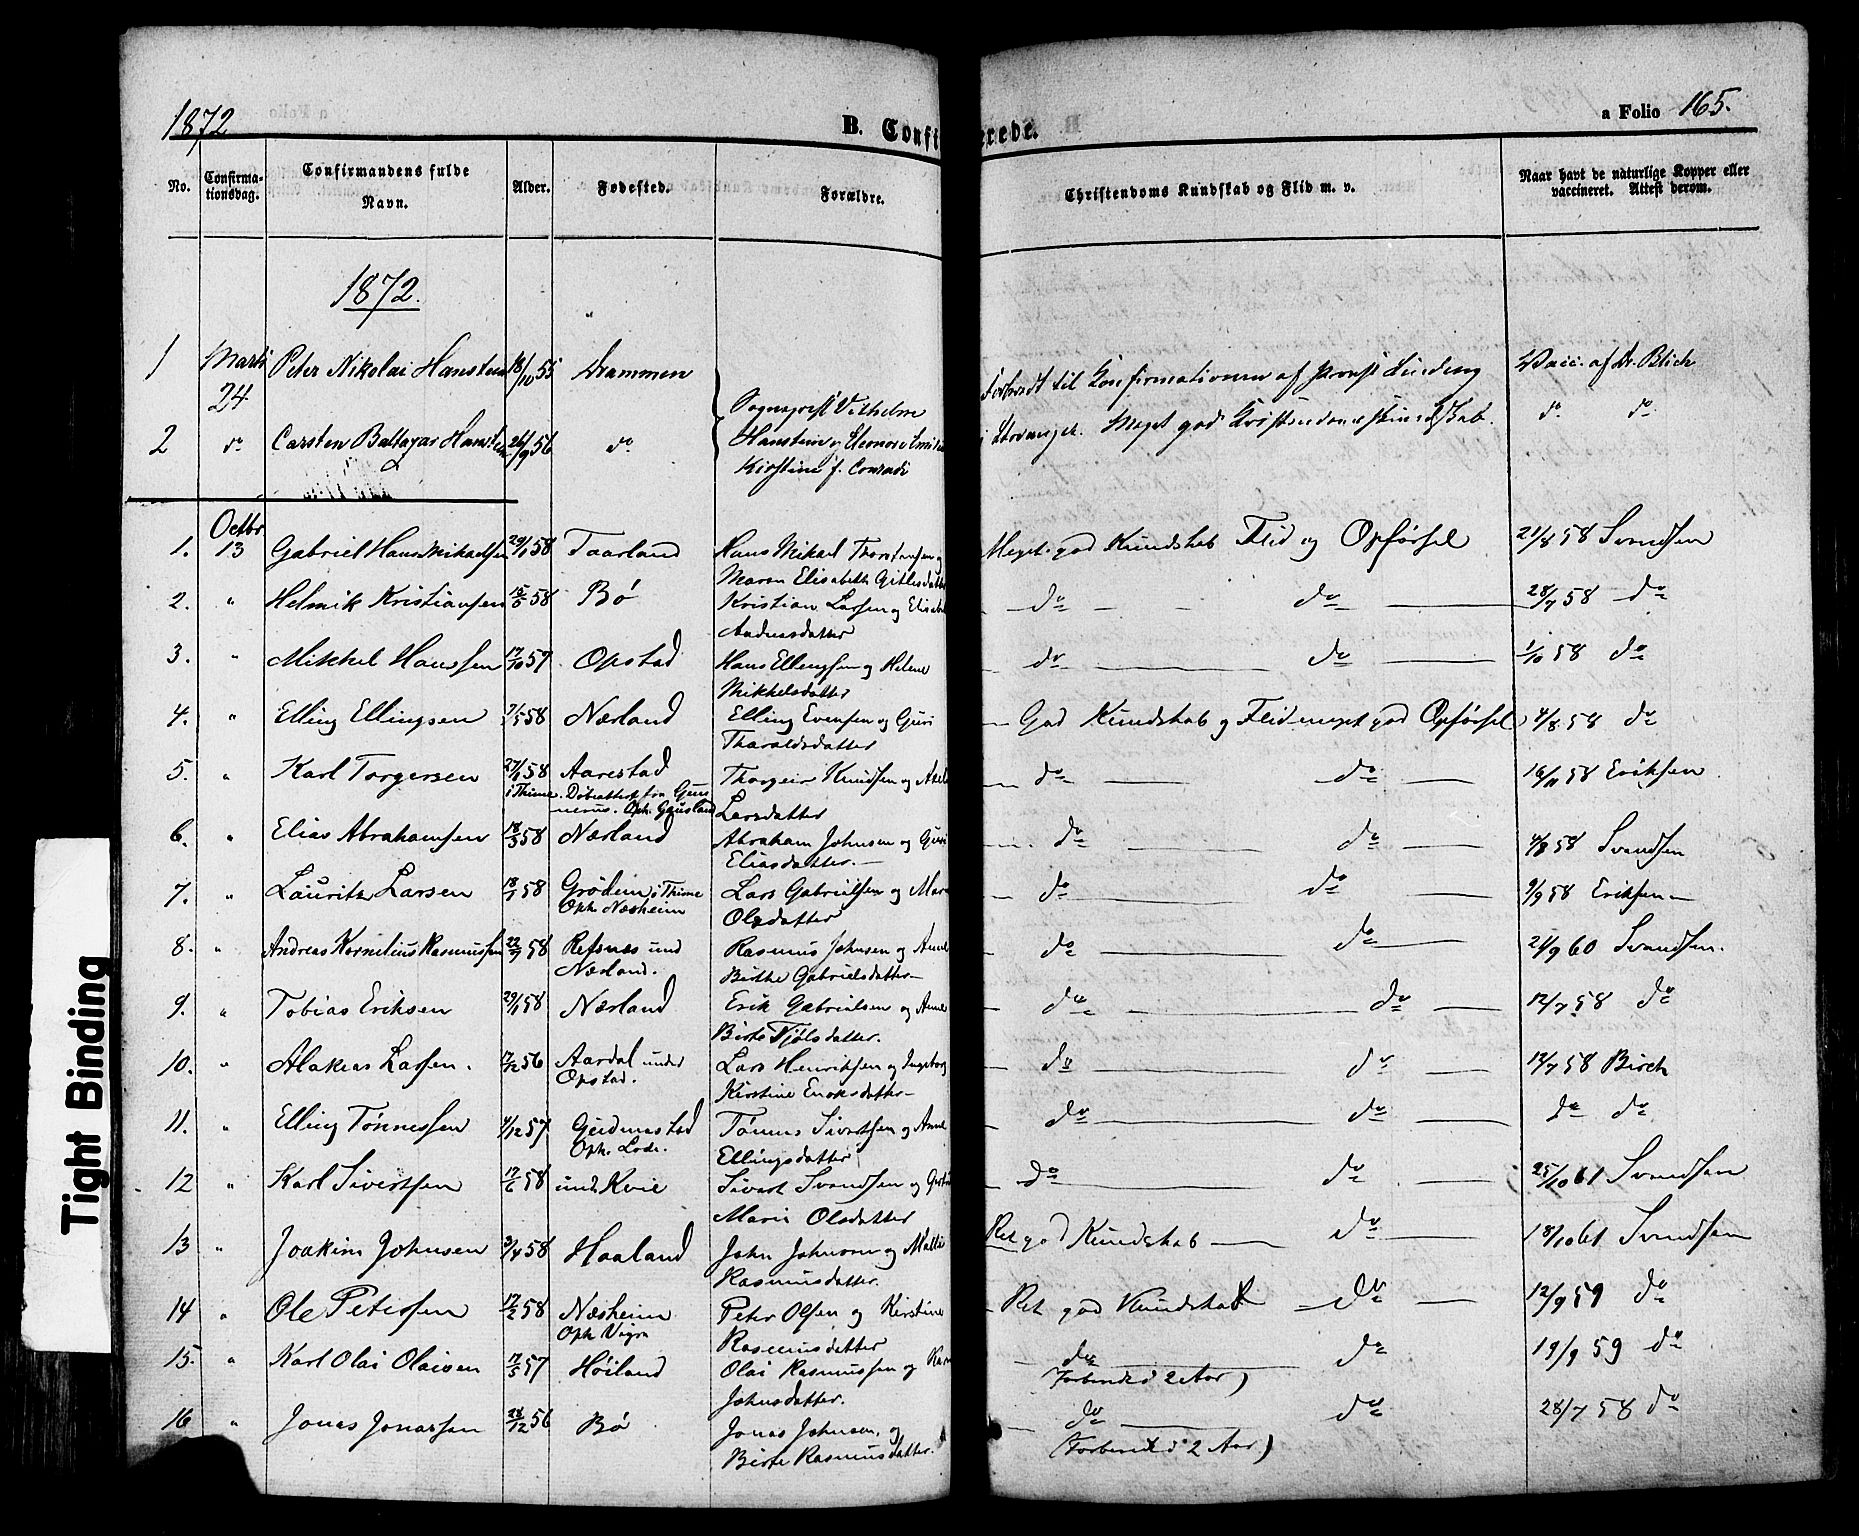 1872
B. Confi
erede.
a Folio 165.
No.
Confirma-
tionsdag.
Confirmandens fulde
Navn.
Alder.
Fødested.
Forældre.
Christendoms Kundskab og Flid m. v.
Naar havt de naturlige Kopper eller
vaccineret. Attest derom.
1872.
1 Marts 24 Peter Nikolai Hansteen 18/10 55 Drammen
Sognepræst Vilhelm
Forberedt til Konfirmationen af Provst
Vacc. af Dr. Blich
2 do Carsten Baltazar Hansteen 26/9 56 do
Hansteen og Eleonore Emilie
Kirstine f. Conradi
i Stavanger. Meget god Kristendomskundskab.
do do
Octbr
1. 13 Gabriel Hans Mikaelsen 29/1 58 Taarland Hans Mikael Thorstensen og
Maren Elisabeth Gitlesdatter
Meget god Kundskab Flid og Opførsel 21/8 58 Svendsen
2. " Helmik Kristiansen 58 Bø Kristian Larsen og Elisabet
Andreasdatter
do do 28/7 58 do
3. " Mikkel Hanssen 17/10 57 Opstad Hans Ellingsen og Helene
Mikkelsdatter
do do 1/10 58 do
4. " Elling Ellingsen 7/5 58 Nærland Elling Evensen og Guri
Tharaldsdatter
God Kundskab og Flid meget god Opførsel 4/8 58 do
5. " Karl Torgersen 58 Aarestad Thorgeir Knudsen og Axel
i Thime. Døbeattest fra Gun-
nerus. Oph. Gausland Larsdatter
do do 58 Eriksen
6. " Elias Abrahamsen 18/3 58 Nærland Abraham Johnsen og Guri
Eliasdatter.
do do 4/8 58 Svendsen
7. " Lauritz Larsen 58 Grødem i Thime Lars Gabrielsen og Mar
Oph. Næsheim Olsdatter
do do 9/9 58 Eriksen
8. " Andreas Kornelius Rasmussen 58 Refsnes und Rasmus Johnsen og Anne
Nærland. Birthe Gabrielsdatter
do do 24/9 60 Svendsen.
9. " Tobias Eriksen 29/1 58 Nærland Erik Gabrielsen og Anne
Birte Tjølsdatter.
do do 12/7 58 do
10. " Makias Larsen. 17/12 56 Aardal under Lars Henriksen og Ingeborg
Opstad. Kirstine Enoksdatter
do do 12/7 58 Birch
11. " Elling Tønnessen 4/12 57 Gudmestad Tønnes Sivertsen og Anne
Oph. Lode. Ellingsdatter
do do do do
12 " Karl Sivertsen 17/6 58 und. Kvie Sivert Svendsen og
Marie Olsdatter
do do 25/10 61 Svendsen
13 " Joakim Johnsen 3/4 58 Haaland John Johnsen og Malli
Rasmusdatter.
Ret god Kundskab do 18/10 61 Svendsen
14 " Ole Petersen 17/2 58 Næsheim Peter Olsen og Kirstine
Oph. Vigre Rasmusdatter
Ret god Kundskab do 12/9 59 do
15. " Karl Olai Olaisen 17/5 57 Høiland Olai Rasmussen og
Johnsdatter.
do do 19/9 59 do
(Forberedt i 2 Aar)
16 " Jonas Jonassen 28/12 56 Bø Jonas Johnsen, og
Birte Rasmusdatter.
do do 28/7 58 do
(Forberedt i 2 Aar)
Tight Binding